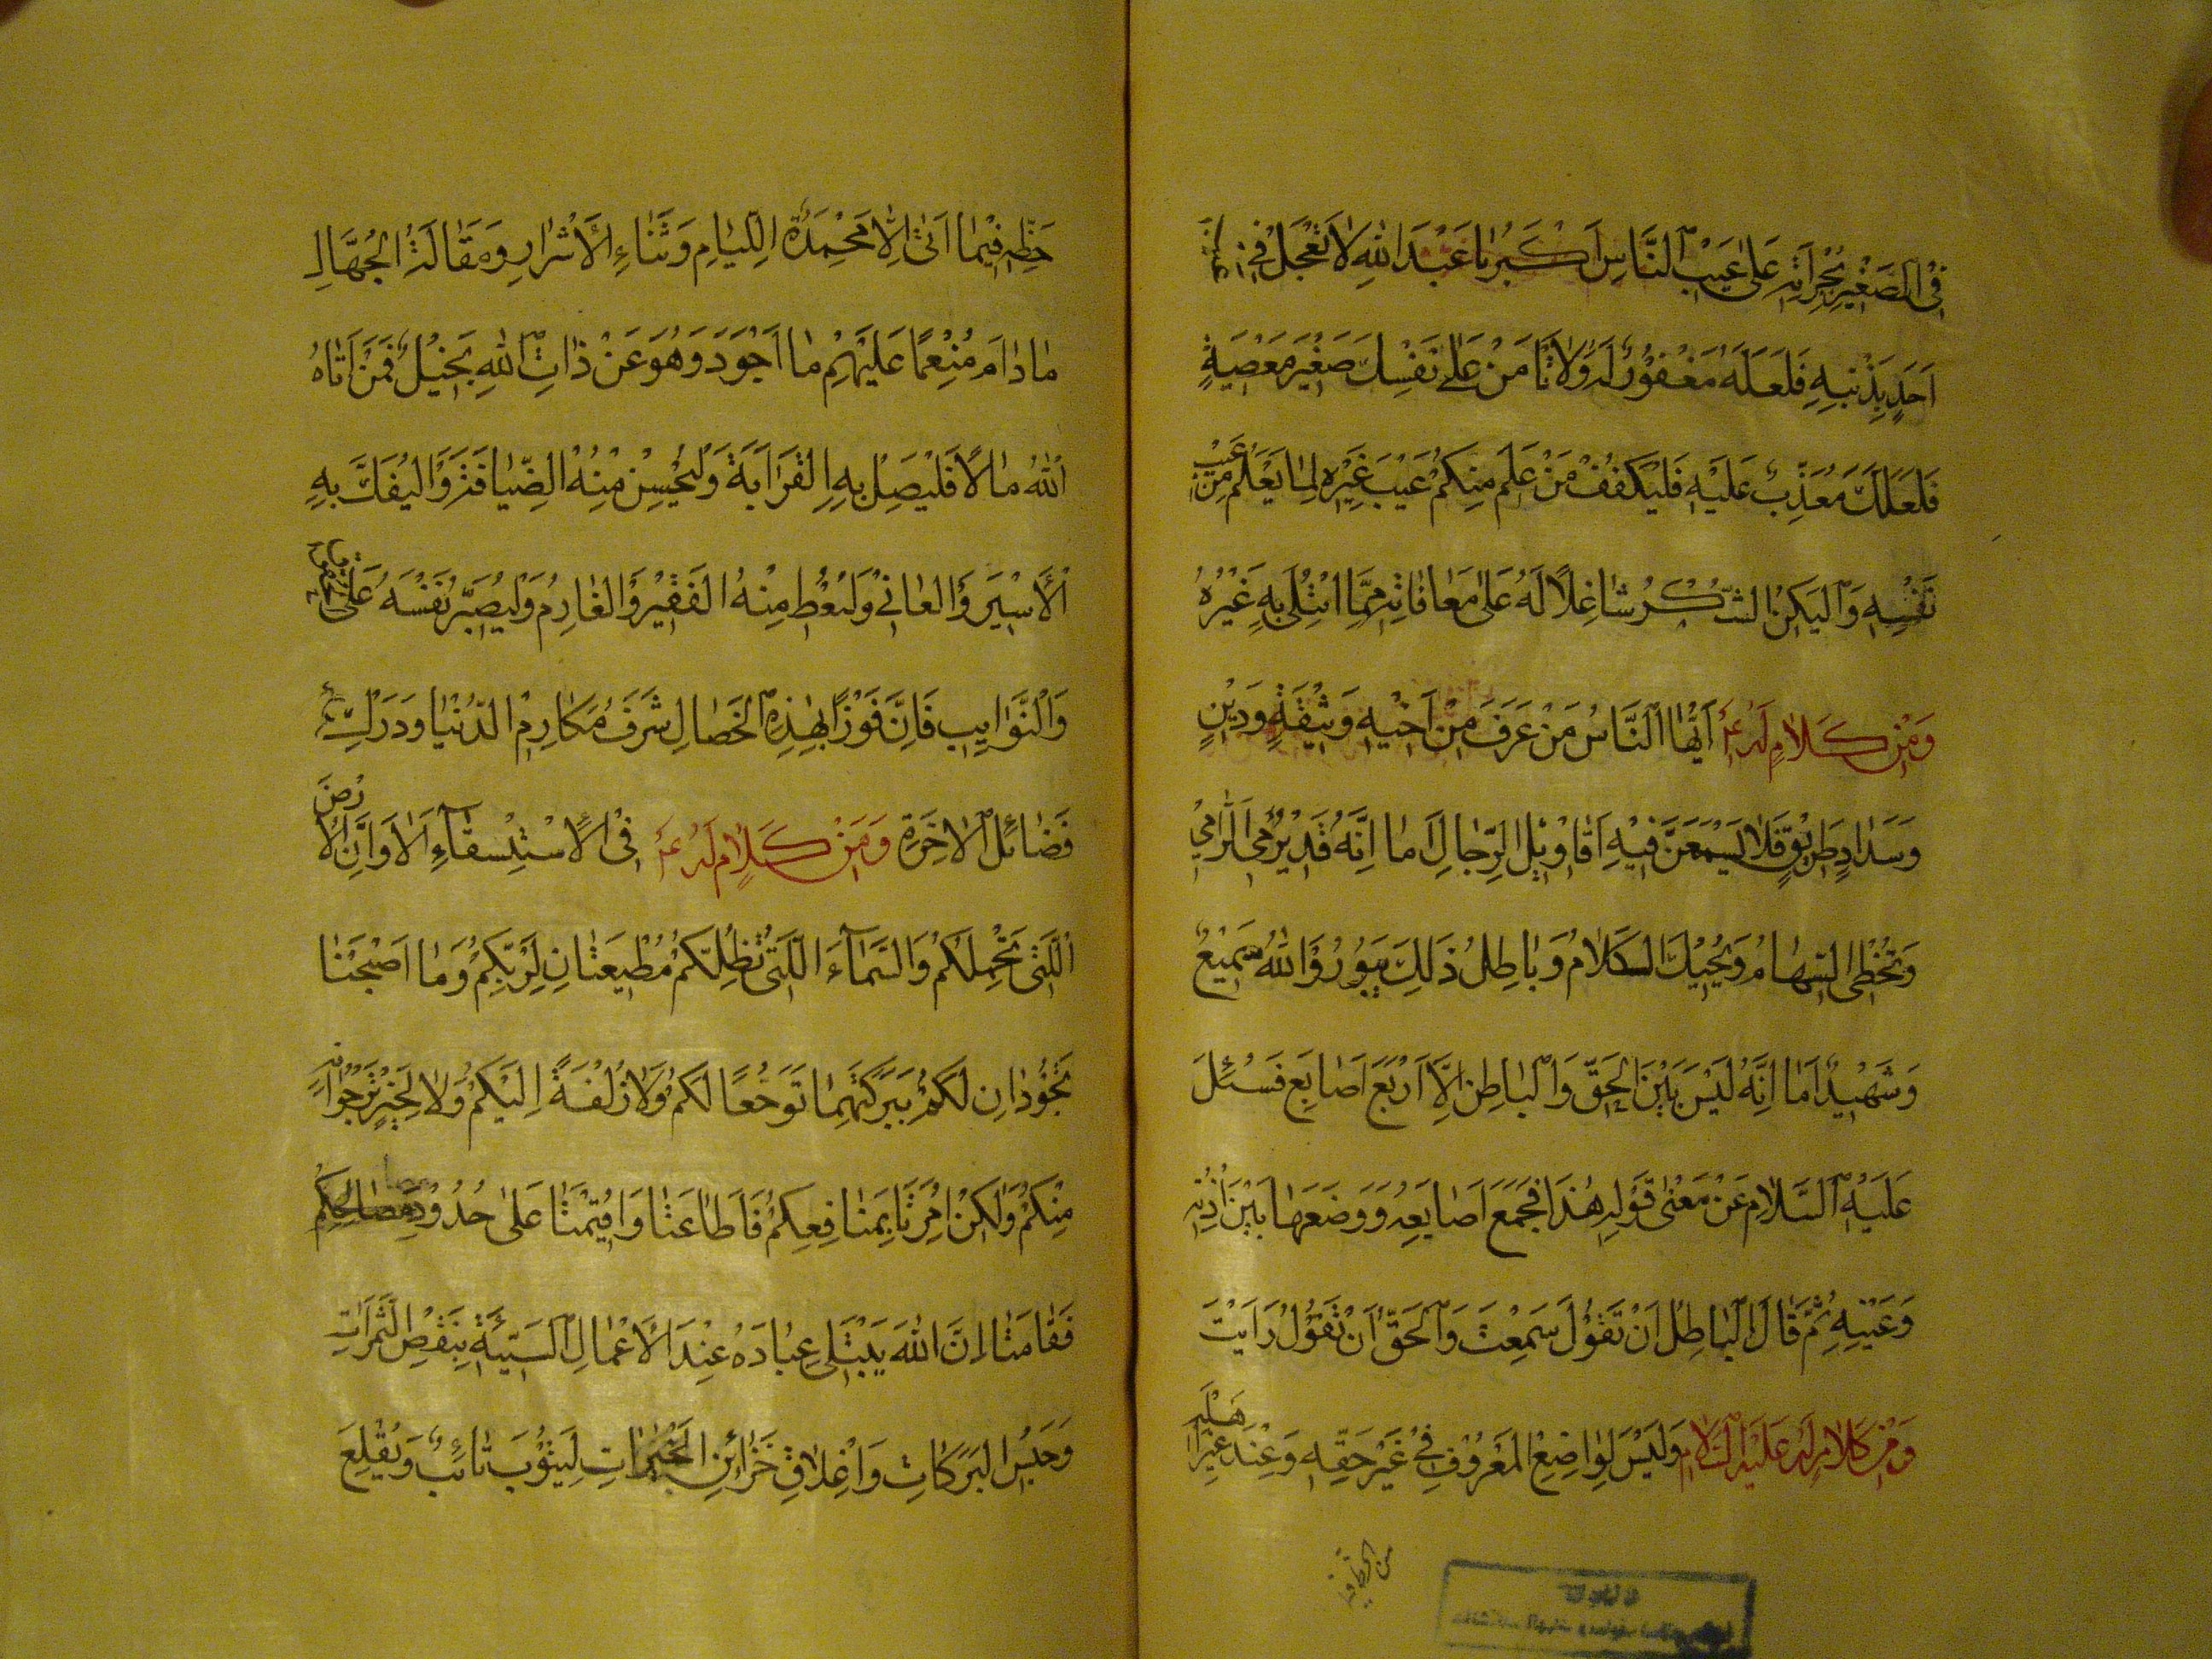 فِى الصَّغِيْرِ لَجُرْأَتُهُ عَلىٰ عَيْبِ النَّاسِ اَكْبَرُ يٰا عَبْدَ اللهِ لاٰ تَعْجَلْ فِى عَيْبِ
اَحَدٍ بِذَنْبِهِ فَلَعَلَّهُ مَغْفُوْرٌ لَهُ وَلاٰ تَاْمَنْ عَلىٰ نَفْسِكَ صَغِيْرَ مَعْصِيَةٍ
فَلَعَلَّكَ مُعَذَّبٌ عَلَيْهِ فَلْيَكْفُفْ مَنْ عَلِمَ مِنْكُمْ عَيْبَ غَيْرِهِ لِمٰا يَعْلَمُ مِنْ عَيْبِ
نَفْسِهِ وَالْيَكُنِ الشُّكْرُ شٰاغِلاً لَهُ عَلىٰ مُعٰافٰاتِهِ مِمَّا ابْتُلِىَ بِهِ غَيْرُهُ
وَمِنْ كَلاٰمٍ لَهُ عم اَيُّهَا النَّاسُ مَنْ عَرَفَ مِنْ اَخِيْهِ وَثِيْقَةَ وَدِيْنٍ
وَسَدٰادِ طَرِيْقٍ فَلاٰ يَسْمَعَنَّ فِيْهِ اَقٰاوِيْلَ الرِّجٰالِ اَمٰا اِنَّهُ قَدْ يَرْمِى الرّٰامِيْ
وَتُخْطِى السِّهٰامُ وَيُحِيْكُ الْكَلاٰمُ وَبٰاطِلُ ذٰلِكَ يَبُوْرُ وَاللهُ سَمِيْعٌ
وَشَهِيْدٌ اَمٰا اِنَّهُ لَيْسَ بَيْنَ الْحَقِّ وَالْبٰاطِنِ اِلَّا اَرْبَعُ اَصٰابِعَ فَسُئِلَ
عَلَيْهِ السَّلاٰم عَنْ مَعْنىٰ قَوْلِهِ هٰذَا فَجَمَعَ اَصٰابِعَهُ وَوَضَعَهٰا بَيْنَ اُذُنِهِ
وَعَيْنِهِ ثُمَّ قٰالَ الْبٰاطِلُ اَنْ تَقُوْلَ سَمِعْتُ وَالْحَقُّ اَنْ تَقُوْلَ رَاَيْتُ
وَمِنْ كَلاٰمٍ لَهُ عَلَيْهِ السَّلاٰم وَلَيْسَ لِوٰاضِعِ الْمَعْرُوْفِ فِىْ غَيْرِ حَقِّهِ وَعِنْدَ غَيْرِ اَهْلِهِ
من الحظ فيما
حَظِّهِ فِيْمٰا اَتىٰ اِلّٰا مَحْمِدَةُ اللِّيٰامِ وَثَنٰاءِ الْاَشْرٰارِ وَمَقٰالَةُ الْجُهَّالِ
مٰادٰامَ مُنْعِمًا عَلَيْهِمْ مٰا اَجْوَدَ وَهُوَ عَنْ ذٰاتِ اللهِ بَخِيْلٌ فَمَنْ اَتٰاهُ
اللهُ مٰالاً فَلْيَصِلْ بِهِ الْقَرٰابَةَ وَلْيُحْسِنْ مِنْهُ الضِّيٰافَةَ وَالْيُفَكَّ بِهِ
الْاَسِيْرَ وَالْعٰانِىْ وَلْيُعْطِ مِنْهُ الْفَقِيْرَ وَالْغٰارِمَ وَلْيُصَبِّرْ نَفْسَهُ عَلىٰ الحقوق
وَالنَّوٰايِبِ فَاِنَّ فَوْزًا بِهٰذِهِ الْخِصٰالِ شَرَفُ مَكٰارِمِ الدُّنْيٰا وَدَرَكُ
فَضٰائِلِ الْاٰخِرَةِ وَمِنْ كَلاٰمٍ لَهُ عم فِى الْاِسْتِسْقٰآءِ اَلاٰ وَاِنَّ الْاَرْضَ
الَّتِىْ تَحْمِلُكُمْ وَالسَّمٰآءَ الَّتِىْ تُظِلُّكُمْ مُطِيْعَتٰانِ لِرَبِّكُمْ وَمٰا اَصْبَحَتٰا
تَجُوْدٰانِ لَكُمْ بِبَرَكَتِهِمٰا تَوَجُّعًا لَكُمْ وَلاٰ زُلْفَةً اِلَيْكُمْ وَلاٰ لِخَيْرٍ تَرْجُوٰانِهِ
مِنْكُمْ وَلٰكِنْ اُمِرَتٰا بِمَنٰافِعِكُمْ فَاَطٰاعَتٰا وَاُقِيْمَتٰا عَلىٰ حُدُوْدِ مَصٰالِحِكُمْ
فَقٰامَتٰا اِنَّ اللهَ يَبْتَلِى عِبٰادَهُ عِنْدَ الْاَعْمٰالِ السَّيِّئَةِ بِنَقْصِ الثَّمَرٰاتِ
وَحَبْسِ الْبَرَكٰاتِ وَاِغْلاٰقِ خَزٰائِنِ الْخَيْرٰاتِ لِيَتُوْبَ تٰائِبٌ وَيُقْلِعَ